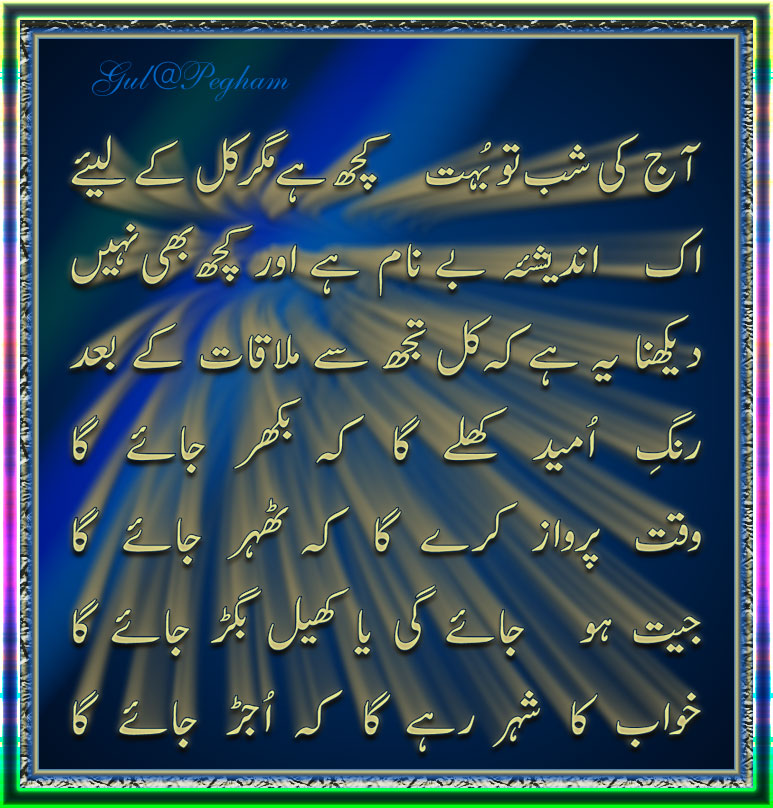 Gul@Pegham
آج کی شب تو بُہت کچھ ہے مگر کل کے لیئے
اک اندیشئہ بے نام ہے اور کچھ بھی نہیں
دیکھنا یہ ہے کہ کل تجھ سے ملاقات کے بعد
رنگِ اُمید کھلے گا کہ بکھر جائے گا
وقت پرواز کرے گا کہ ٹھہر جائے گا
جیت ہو جائے گی یا کھیل بگڑ جائے گا
خواب کا شہر رہے گا کہ اُجڑ جائے گا